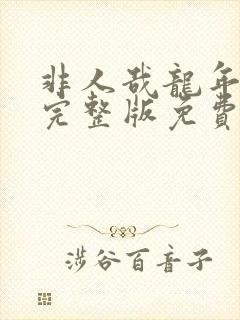 非人哉龍年
完整版免費
涉谷百音子